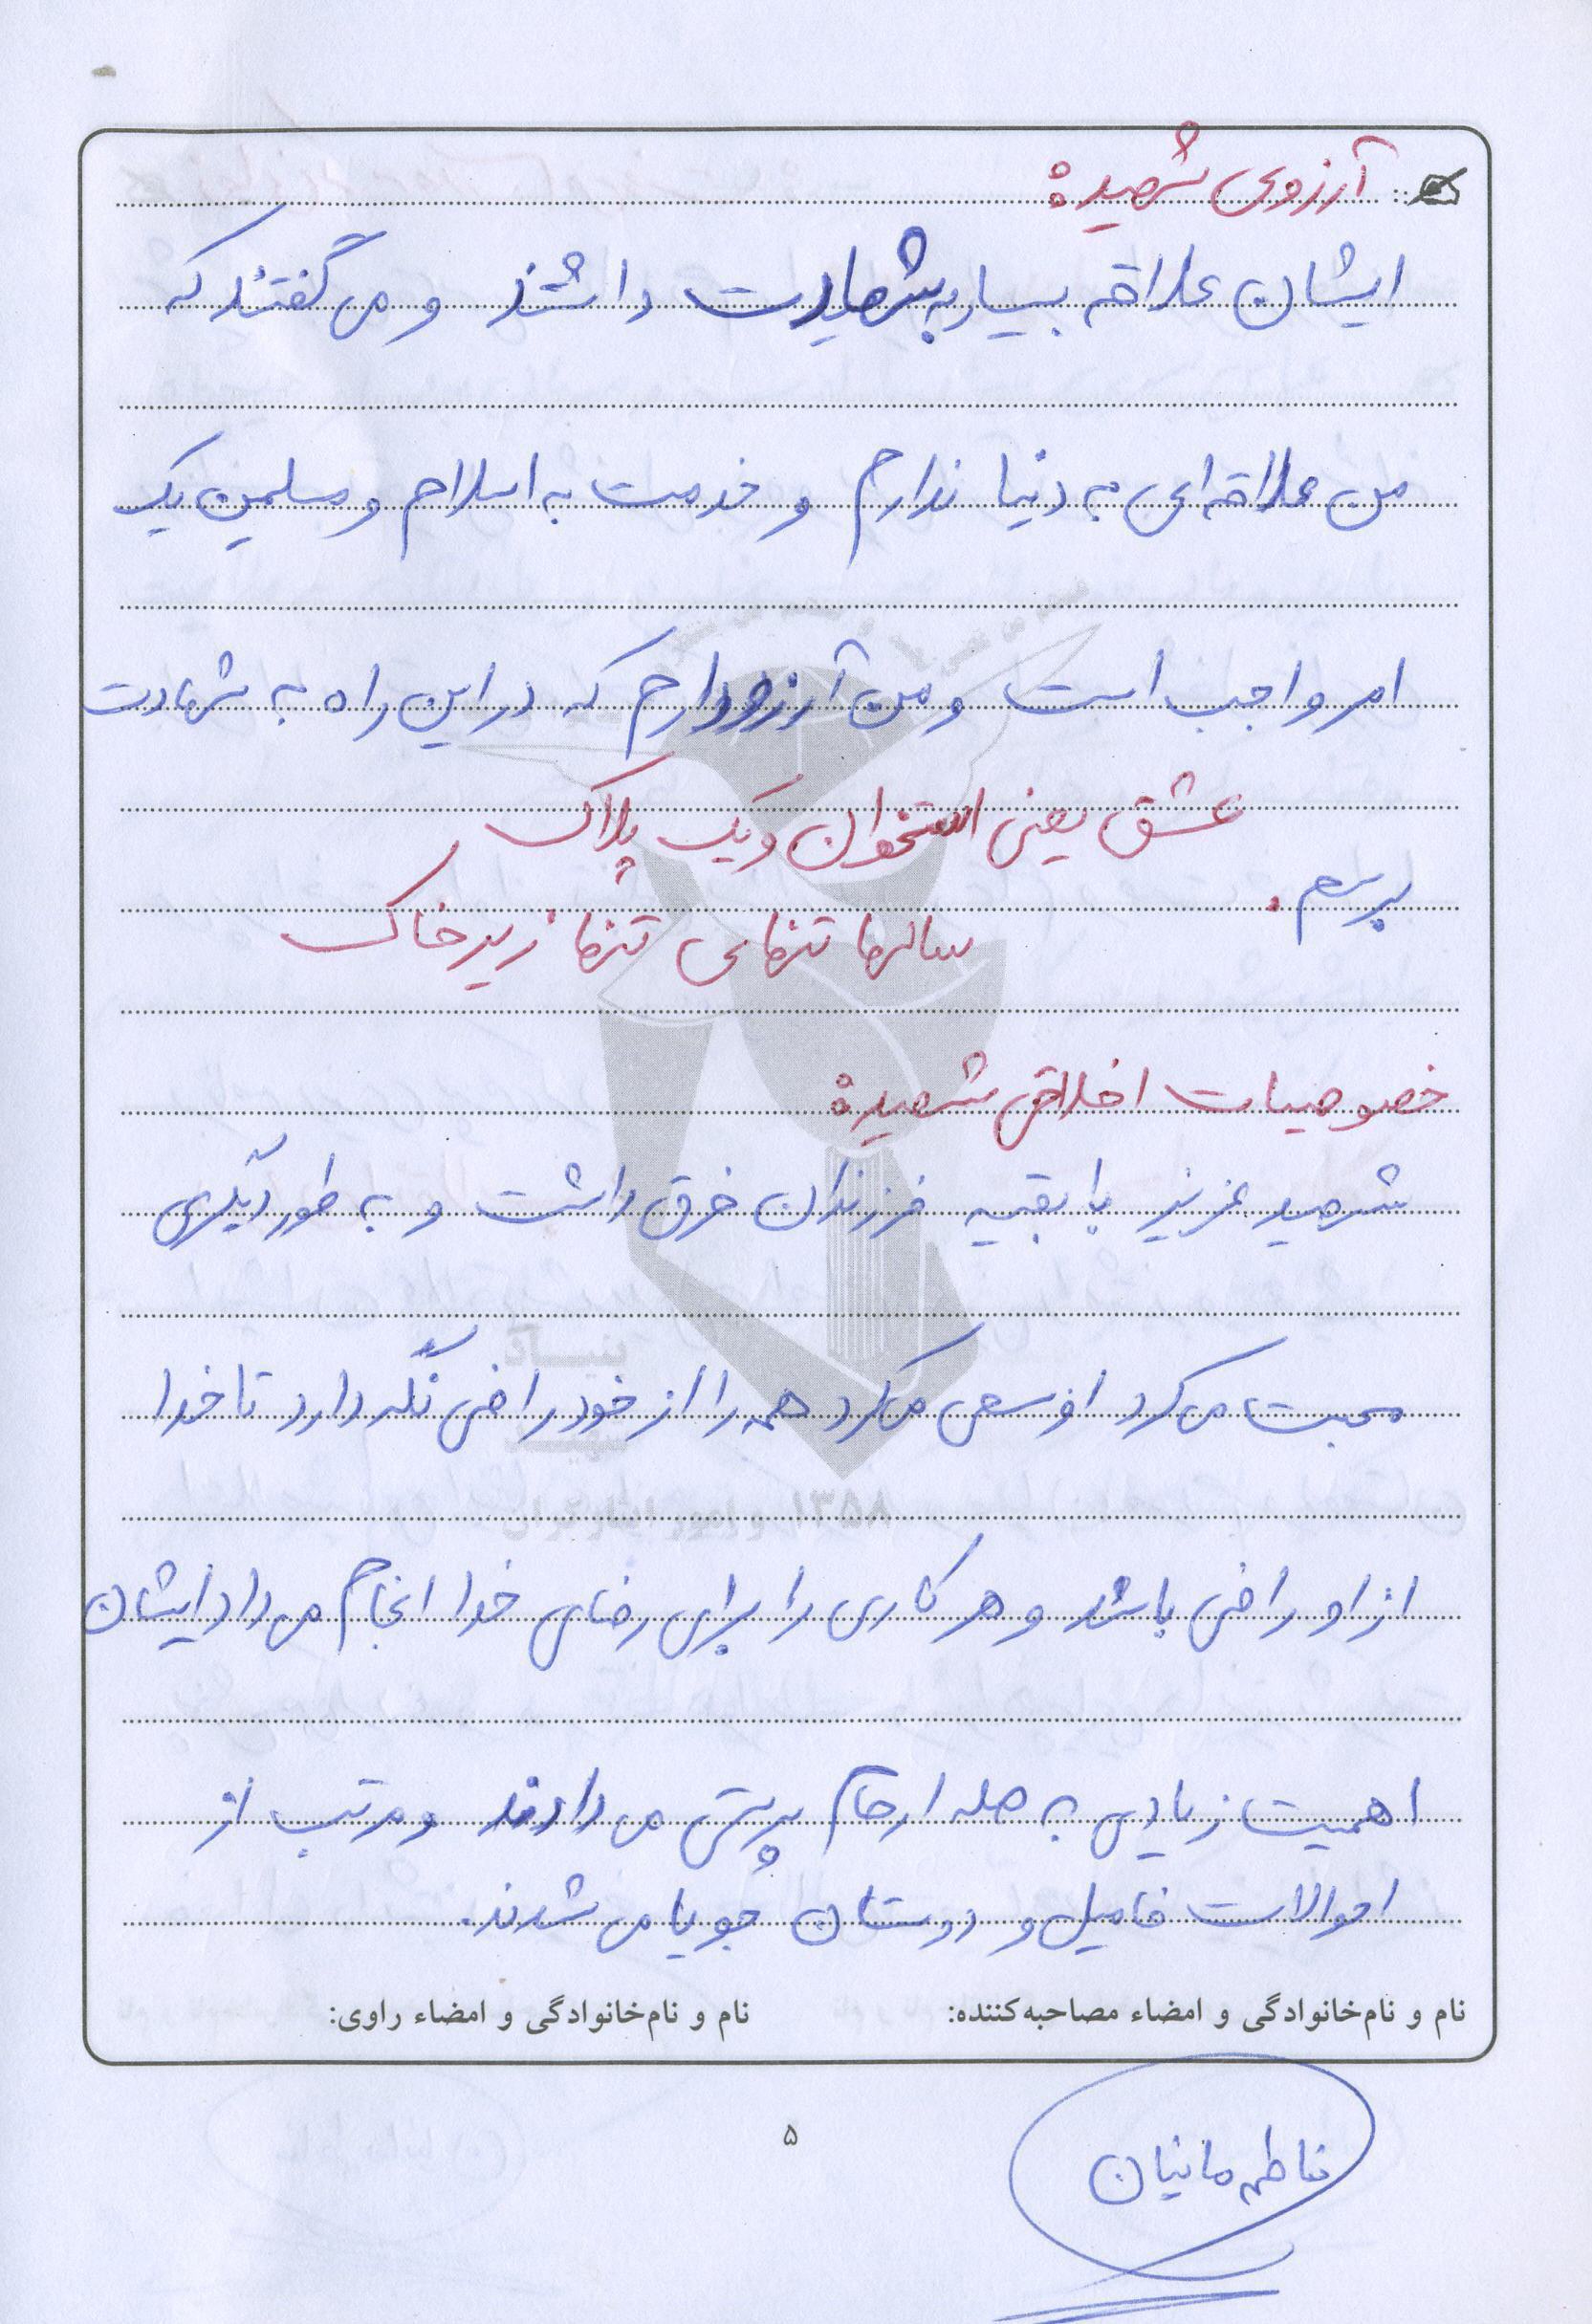 آرزوی شهید:
ایشان علاقه بسیار به شهادت داشتند و می گفتند که
من علاقه ای به دنیا ندارم و خدمت به اسلام و مسلمین یک
امر واجب است و من آرزو دارم که در این راه به شهادت
عشق یعنی استخوان و یک پلاک
برسم.
سالها تنهای تنها زیر خاک
خصوصیات اخلاقی شهید:
شهید عزیز با بقیه فرزندان فرق داشت و به طور دیگری
محبت می کرد او سعی می کرد همه را از خود راضی نگه دارد تا خدا
از او راضی باشد و هر کاری را برای رضای خدا انجام می داد ایشان
اهمیت زیادی به صله ارحام می دادند و مرتب از
احوالات فامیل و دوستان جویا می شدند.
نام و نام‌خانوادگی و امضاء مصاحبه‌کننده: نام و نام‌خانوادگی و امضاء راوی:
فاطمه مانیان
۵
بنیاد
شهید
و امور ایثارگران ۱۳۵۸